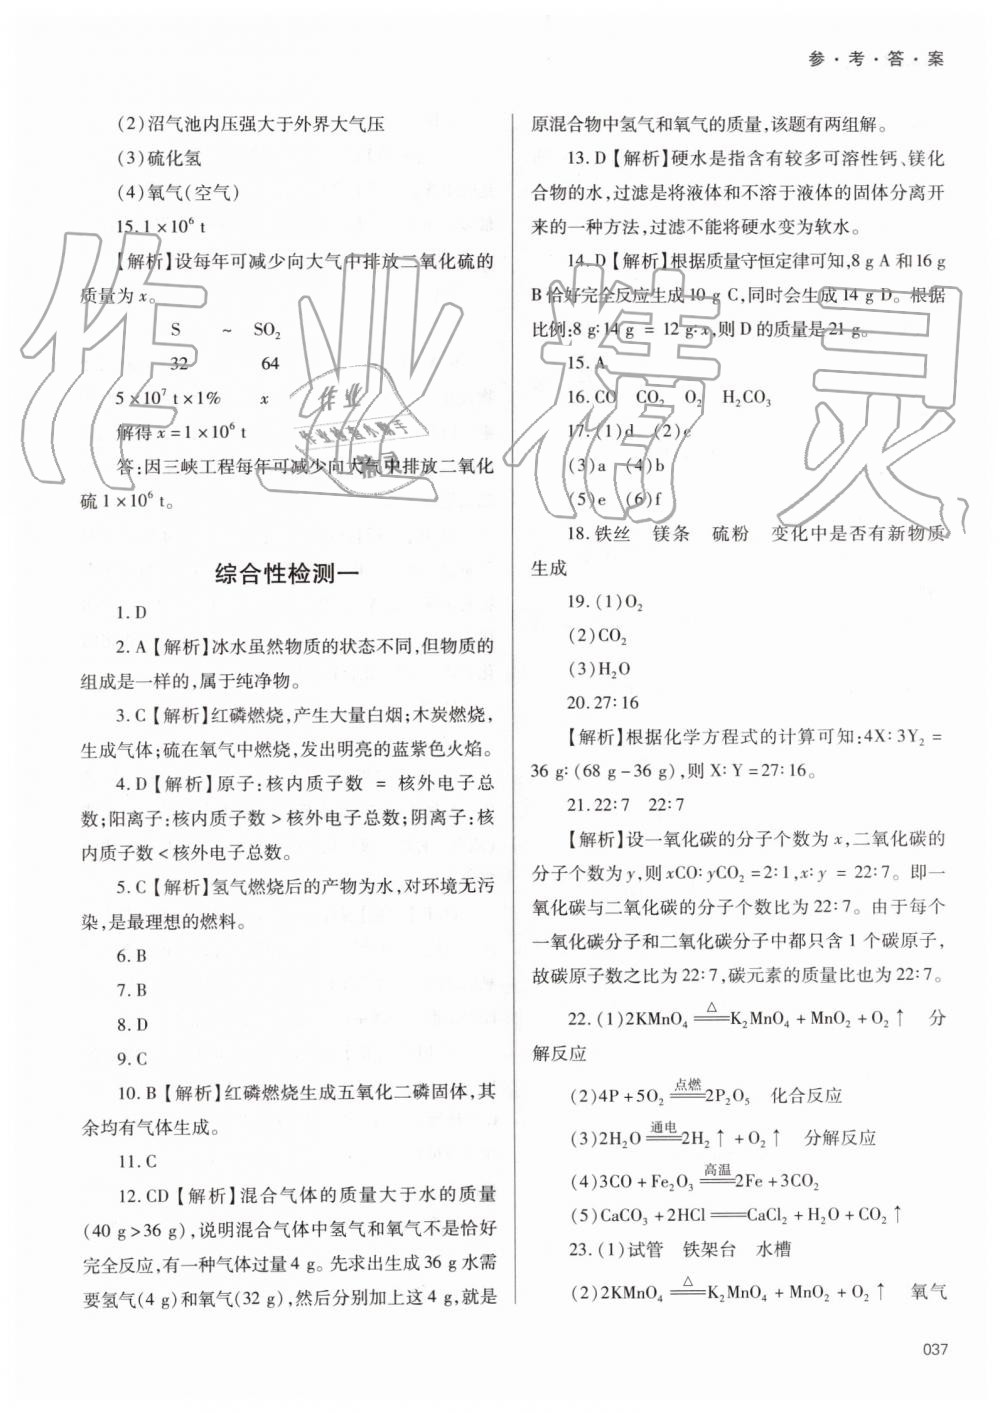 参·考·答·案
(2)沼气池内压强大于外界大气压
(3)硫化氢
(4)氧气(空气)
15. 1×10⁶ t
【解析】设每年可减少向大气中排放二氧化硫的
质量为 x。
S ~ SO₂
32 64
5×10⁷ t×1% x
解得 x=1×10⁶ t
答:因三峡工程每年可减少向大气中排放二氧化
硫 1×10⁶ t。
综合性检测一
1. D
2. A【解析】冰水虽然物质的状态不同,但物质的
组成是一样的,属于纯净物。
3. C【解析】红磷燃烧,产生大量白烟;木炭燃烧,
生成气体;硫在氧气中燃烧,发出明亮的蓝紫色火焰。
4. D【解析】原子:核内质子数 = 核外电子总
数;阳离子:核内质子数>核外电子总数;阴离子:核
内质子数<核外电子总数。
5. C【解析】氢气燃烧后的产物为水,对环境无污
染,是最理想的燃料。
6. B
7. B
8. D
9. C
10. B【解析】红磷燃烧生成五氧化二磷固体,其
余均有气体生成。
11. C
12. CD【解析】混合气体的质量大于水的质量
(40 g>36 g),说明混合气体中氢气和氧气不是恰好
完全反应,有一种气体过量 4 g。先求出生成 36 g 水需
要氢气(4 g)和氧气(32 g),然后分别加上这 4 g,就是
原混合物中氢气和氧气的质量,该题有两组解。
13. D【解析】硬水是指含有较多可溶性钙、镁化
合物的水,过滤是将液体和不溶于液体的固体分离开
来的一种方法,过滤不能将硬水变为软水。
14. D【解析】根据质量守恒定律可知,8 g A 和 16 g
B 恰好完全反应生成 10 g C,同时会生成 14 g D。根据
比例:8 g∶14 g = 12 g∶x,则 D 的质量是 21 g。
15. A
16. CO CO₂ O₂ H₂CO₃
17. (1)d (2)c
(3)a (4)b
(5)e (6)f
18. 铁丝 镁条 硫粉 变化中是否有新物质
生成
19. (1)O₂
(2)CO₂
(3)H₂O
20. 27∶16
【解析】根据化学方程式的计算可知:4X∶3Y₂ =
36 g∶(68 g-36 g),则 X∶Y=27∶16。
21. 22∶7 22∶7
【解析】设一氧化碳的分子个数为 x,二氧化碳的
分子个数为 y,则 xCO∶yCO₂=2∶1,x∶y = 22∶7。即一
氧化碳与二氧化碳的分子个数比为 22∶7。由于每个
一氧化碳分子和二氧化碳分子中都只含 1 个碳原子,
故碳原子数之比为 22∶7,碳元素的质量比也为 22∶7。
22. (1)2KMnO₄ ≜ K₂MnO₄+MnO₂+O₂↑ 分
解反应
(2)4P+5O₂ 点燃═ 2P₂O₅ 化合反应
(3)2H₂O 通电═ 2H₂↑+O₂↑ 分解反应
(4)3CO+Fe₂O₃ 高温═ 2Fe+3CO₂
(5)CaCO₃+2HCl═CaCl₂+H₂O+CO₂↑
23. (1)试管 铁架台 水槽
(2)2KMnO₄ ≜ K₂MnO₄+MnO₂+O₂↑ 氧气
037
作业精灵
作业
作业检查小帮手
精灵